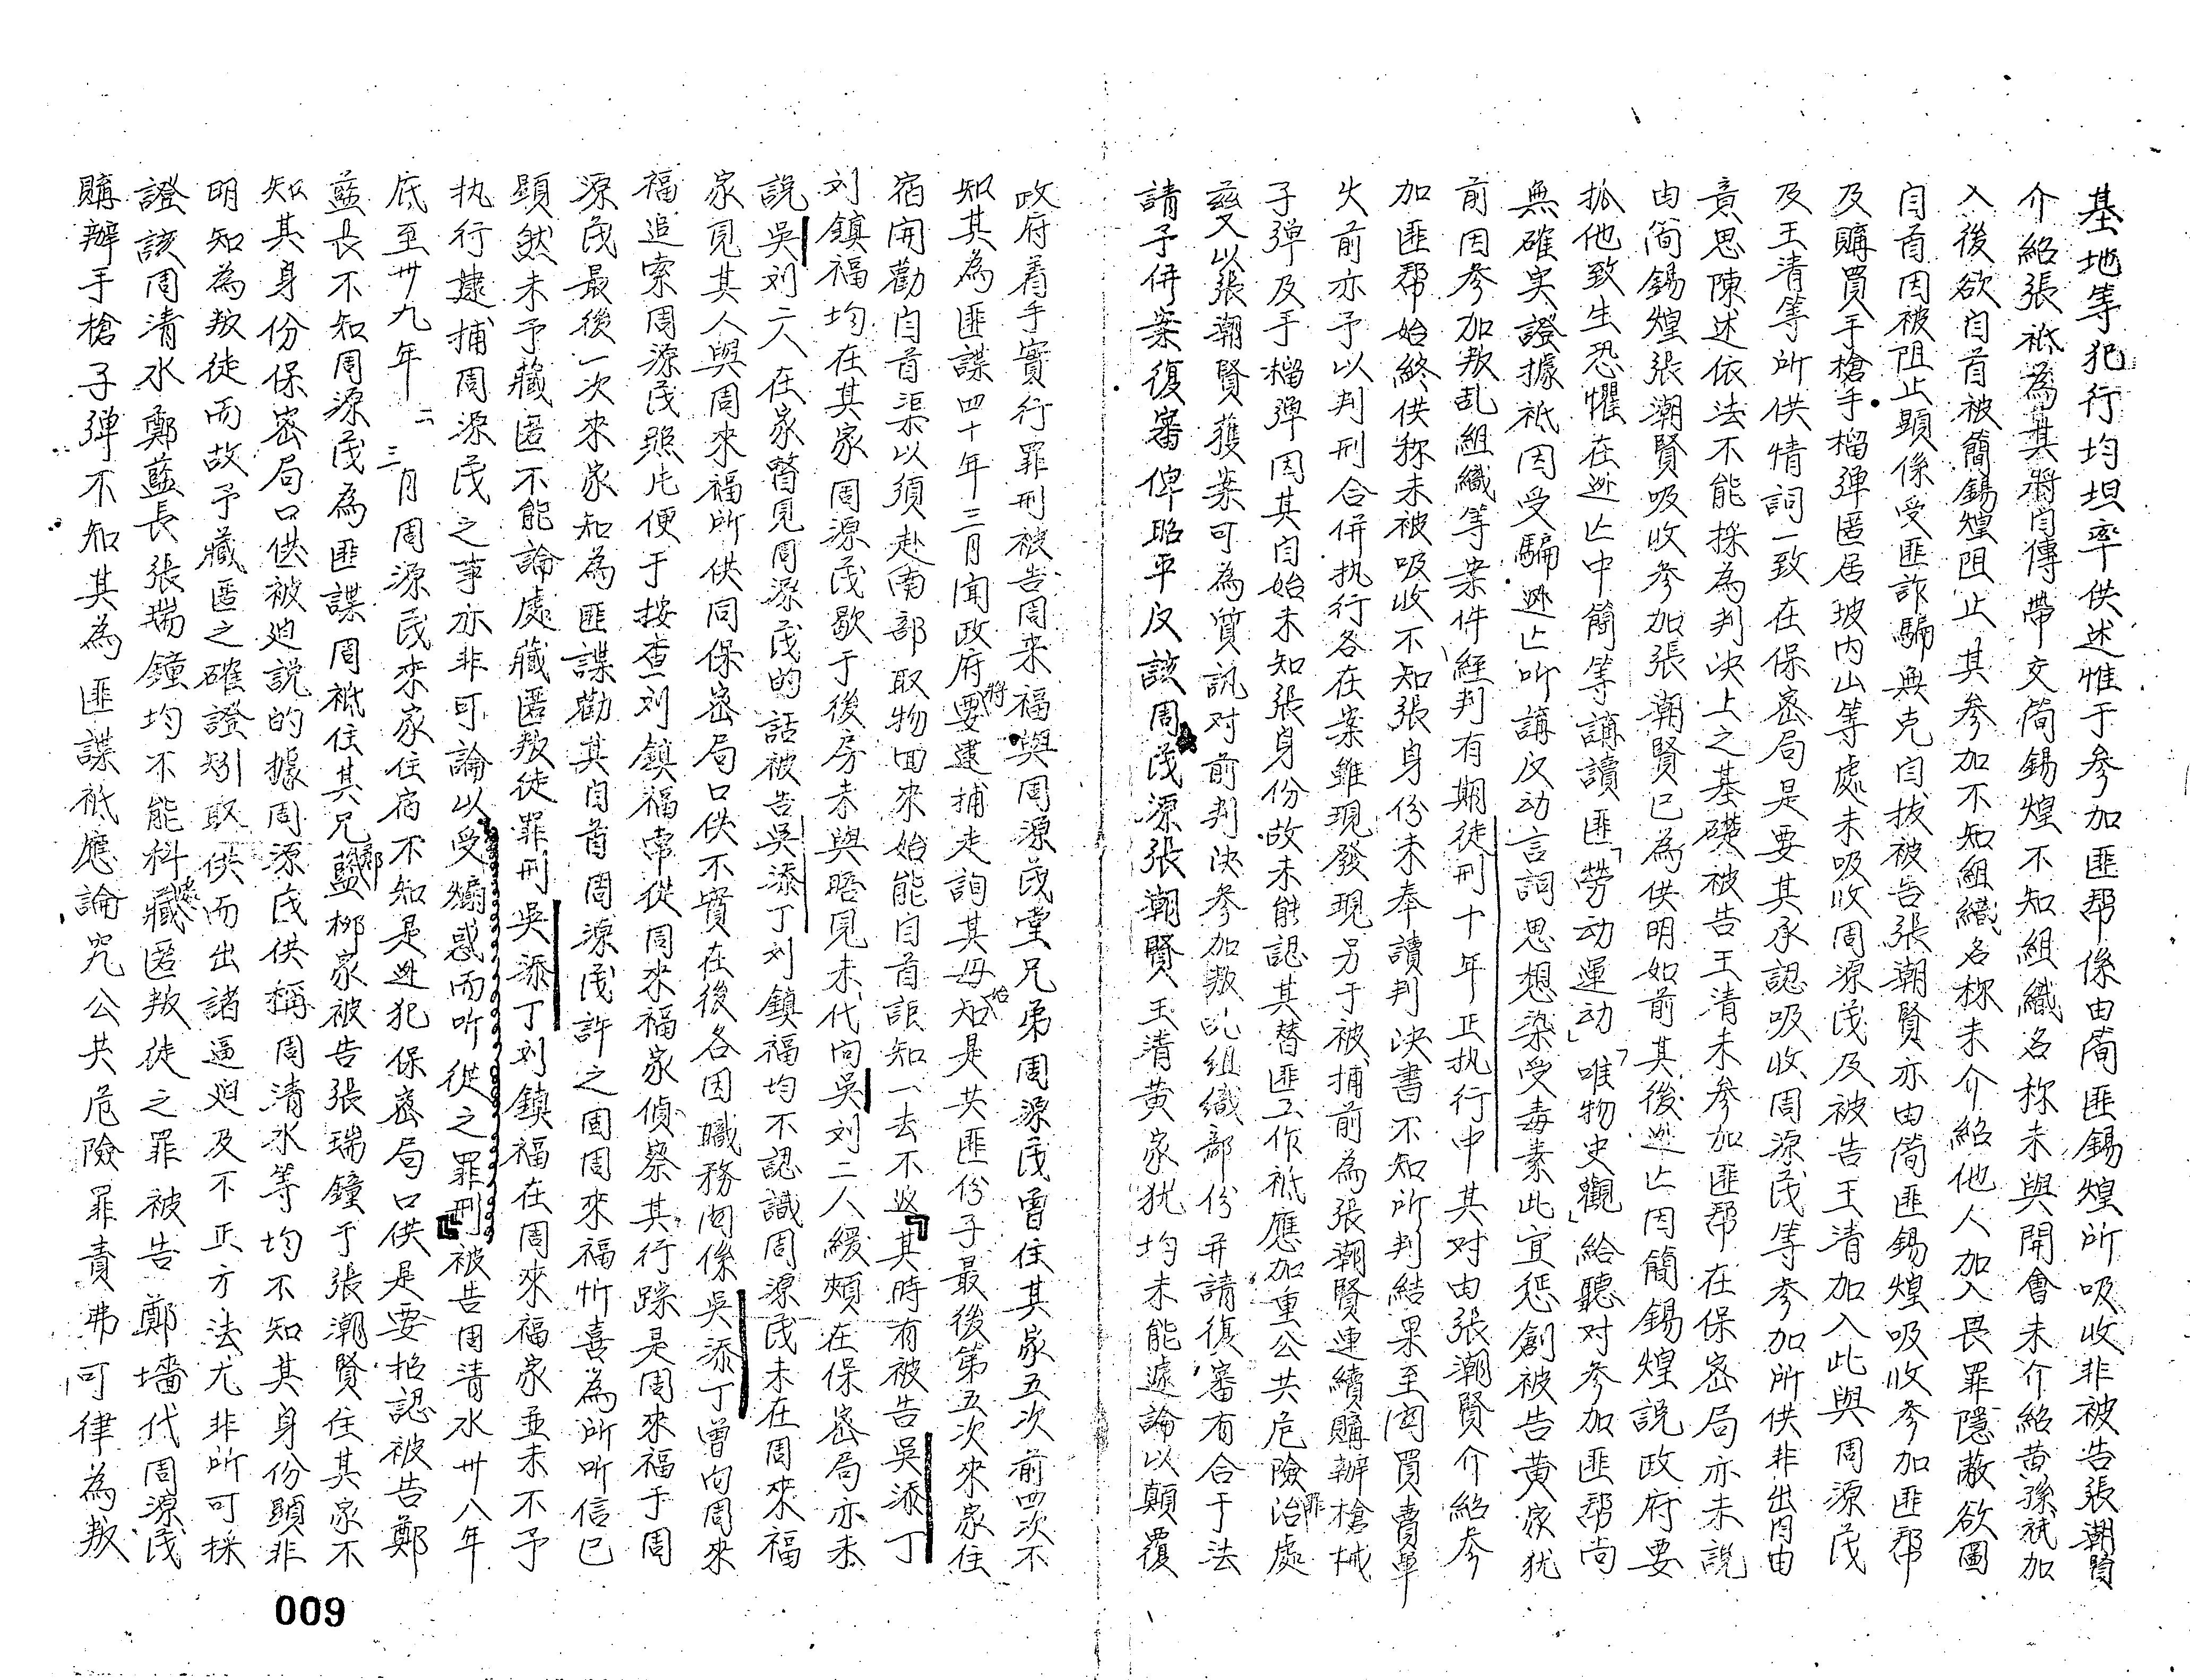 基地等犯行均坦率供述惟于參加匪帮係由简匪錫煌所吸收非被告張潮賢
介紹張祗為其將自傳帶交简錫煌不知組織名称未與開會未介紹黄孫祗加
入後欲自首被簡錫煌阻止其参加不知組織名称未介紹他人加入畏罪隱蔽欲圖
自首因被阻止顕係受匪詐騙無克自拔被告張潮賢亦由简匪錫煌吸收参加匪帮
及購買手槍手榴弹匿居坡内山等處未吸收周源茂及被告王清加入此與周源茂
及王清等所供情詞一致在保密局是要其承認吸收周源茂等参加所供非出自由
意思陳述依法不能採為判决上之基礎被告王清未参加匪帮在保密局亦未說
由简錫煌張潮賢吸收参加張潮賢已為供明如前其後逃亡因簡錫煌說政府要
抓他致生恐懼在逃亡中簡等誦讀匪「勞动運动」「唯物史觀」給聽对参加匪帮尚
無確实證據祗因受騙逃亡听講反动言詞思想染受毒素此宜惩創被告黄家犹
前因参加叛乱組織等案件經判有期徒刑十年正执行中其对由張潮賢介紹参
加匪帮始終供称未被吸收不知張身份未奉讀判决書不知所判結果至関買賣單
火前亦予以判刑合併执行各在案雖現發現另于被捕前為張潮賢連續購辦槍械
子弹及手榴弹因其自始未知張身份故未能認其替匪工作祗應加重公共危險罪治處
茲又以張潮賢獲案可為質訊对前判决参加叛乱組織部份并請復審有合于法
請予併案復審俾昭平反該周茂源張潮賢王清黄家犹均未能遽論以顛覆
政府着手實行罪刑被告周来福與周源茂堂兄弟周源茂曾住其家五次前四次不
知其為匪諜四十年三月闻政府將要逮捕走詢其母始知是共匪份子最後第五次來家住
宿開勸自首渠以須赴南部取物回來始能自首詎知一去不返』其時有被告吳添丁
刘鎮福均在其家周源茂歇于後房未與晤見未代向吳刘二人緩頰在保密局亦未
說吳刘二人在家瞥見周源茂的話被告吳添丁刘鎮福均不認識周源茂未在周來福
家見其人與周來福所供同保密局口供不實在後各因職務関係吳添丁曾向周來
福追索周源茂照片便于按查刘鎮福常從周來福家偵察其行踪是周來福于周
源茂最後一次來家知為匪諜勸其自首周源茂許之固周來福忻喜為所听信已
顕然未予藏匿不能論處藏匿叛徒罪刑吳添丁刘鎮福在周來福家並未不予
执行逮捕周源茂之事亦非可論以受煽惑而听從之罪刑『被告周清水卅八年
底至卅九年二三月周源茂來家住宿不知是逃犯保密局口供是要招認被告鄭
藍長不知周源茂為匪諜周祗住其兄鄭藍柳家被告張瑞鐘于張潮賢住其家不
知其身份保密局口供被迫說的據周源茂供稱周清水等均不知其身份顕非
明知為叛徒而故予藏匿之確證矧取供而出諸逼迫及不正方法尤非所可採
證該周清水鄭藍長張瑞鐘均不能科以藏匿叛徒之罪被告鄭墻代周源茂
購辦手槍子弹不知其為匪諜祗應論究公共危險罪責弗可律為叛
009